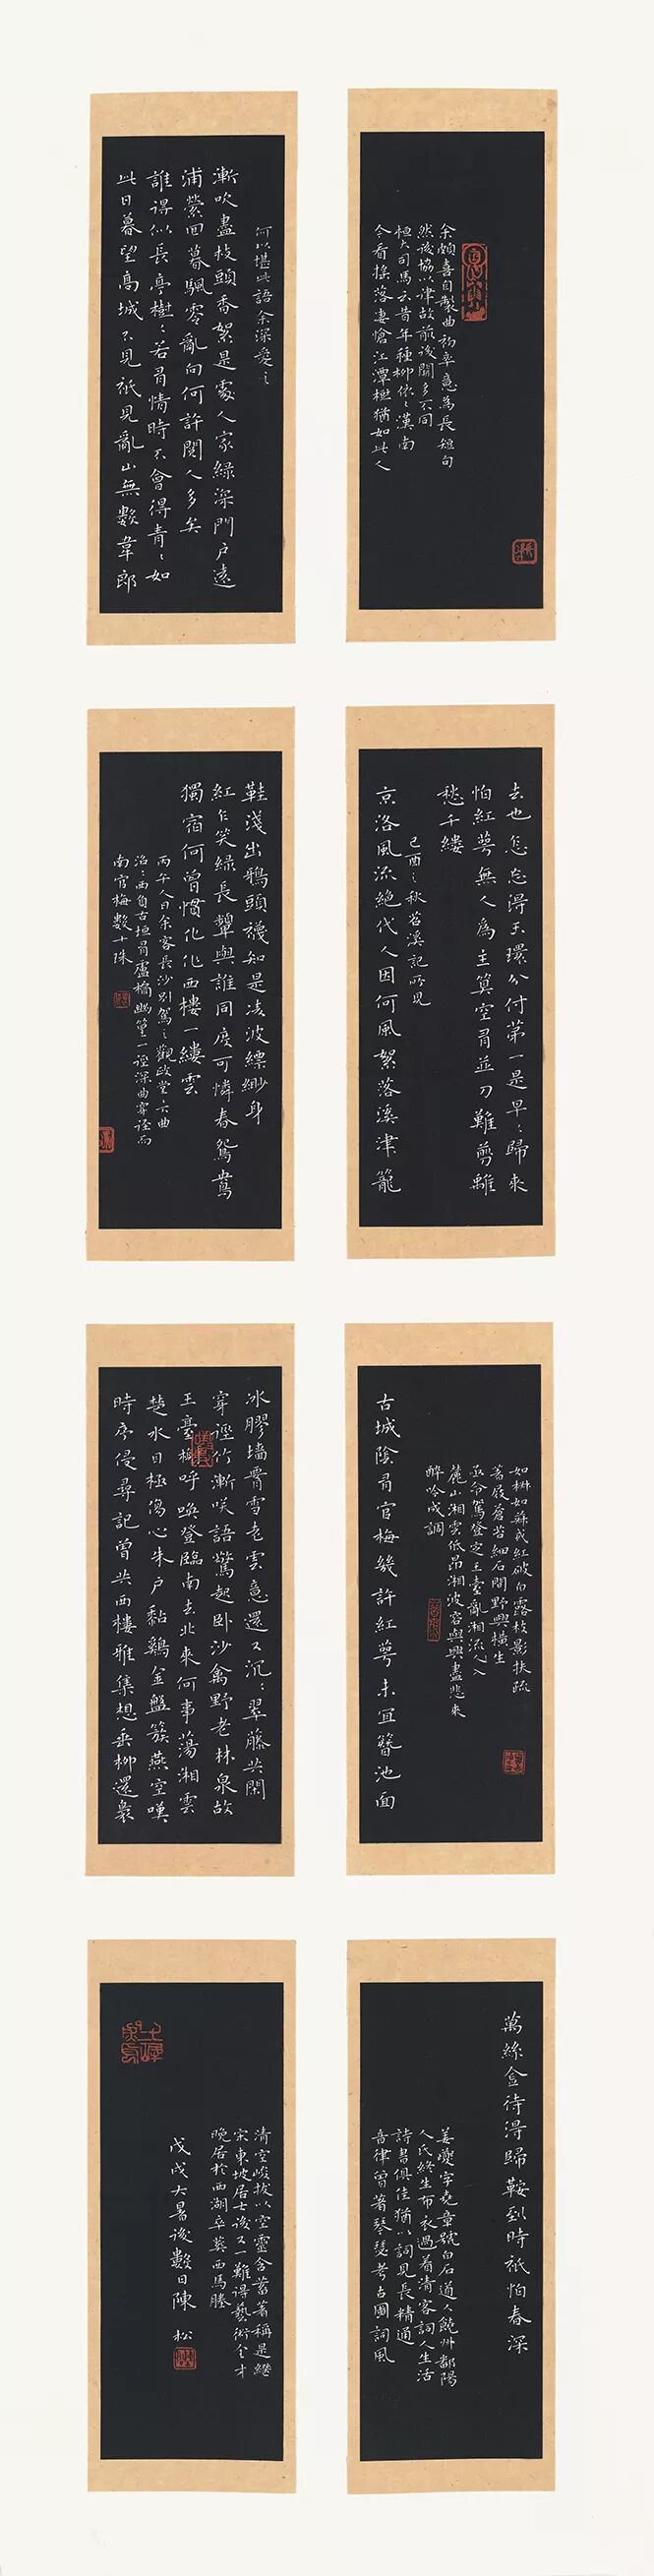 余頗喜自製曲初率意為長短句
然後協以律故前後闋多不同
桓大司馬云昔年種柳依〻漢南
今看搖落悽愴江潭樹猶如此人
何以堪此語余深愛之
漸吹盡枝頭香絮是處人家綠深門戶遠
浦縈回暮颿零亂向何許閱人多矣
誰得似長亭樹〻若有情時不會得青〻如
此日暮望高城不見祇見亂山無數韋郎
去也怎忘得玉環分付第一是早〻歸來
怕紅萼無人為主算空有並刀難剪離
愁千縷
己酉之秋苕溪記所見
京洛風流絕代人因何風絮落溪津籠
鞋淺出鴉頭襪知是凌波縹緲身
紅乍笑綠長顰與誰同度可憐春鴛鴦
獨宿何曾慣化作西樓一縷雲
丙午人日余客長沙別駕之觀政堂下曲
沼〻西負古垣有盧橘幽篁一逕深曲穿逕而
南官梅數十株
如椒如菽或紅破白露枝影扶疏
著屐蒼苔細石間野興橫生
亟命駕登定王臺亂湘流入
麓山湘雲低昂湘波容與興盡悲來
醉吟成調
古城陰有官梅幾許紅萼未宜簪池面
冰膠墻腰雪老雲意還又沉〻翠藤共閒
穿逕竹漸笑語驚起臥沙禽野老林泉故
王臺榭呼喚登臨南去北來何事蕩湘雲
楚水目極傷心朱戶黏鷄金盤簇燕空嘆
時序侵尋記曾共西樓雅集想垂柳還裊
萬絲金待得歸鞍到時祇怕春深
姜夔字堯章號白石道人饒州鄱陽
人氏終生布衣過着清客詞人生活
詩書俱佳猶以詞見長精通
音律曾著琴瑟考古圖詞風
清空峻拔以空靈含蓄著稱是繼
宋東坡居士後又一難得藝術全才
晚居於西湖卒葬西馬塍
戊戌大暑後數日陳松